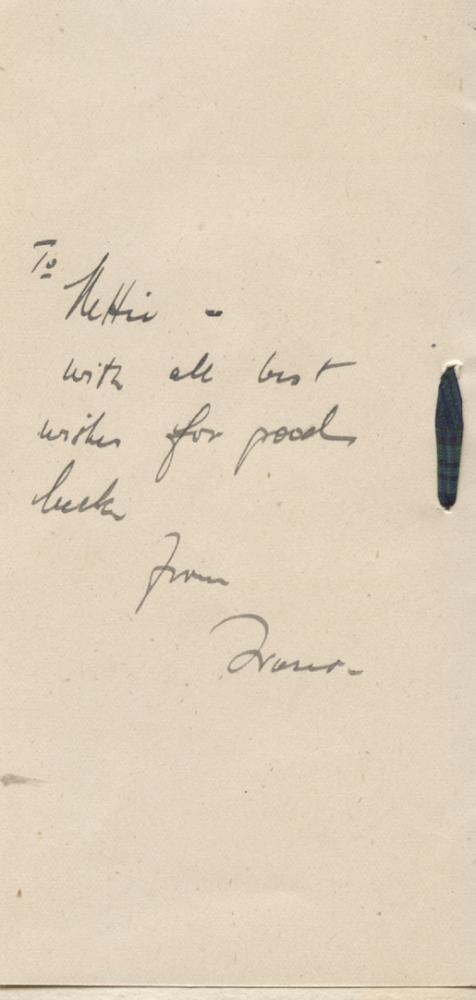 To
Nettie -
with all best
wishes for good
luck
from